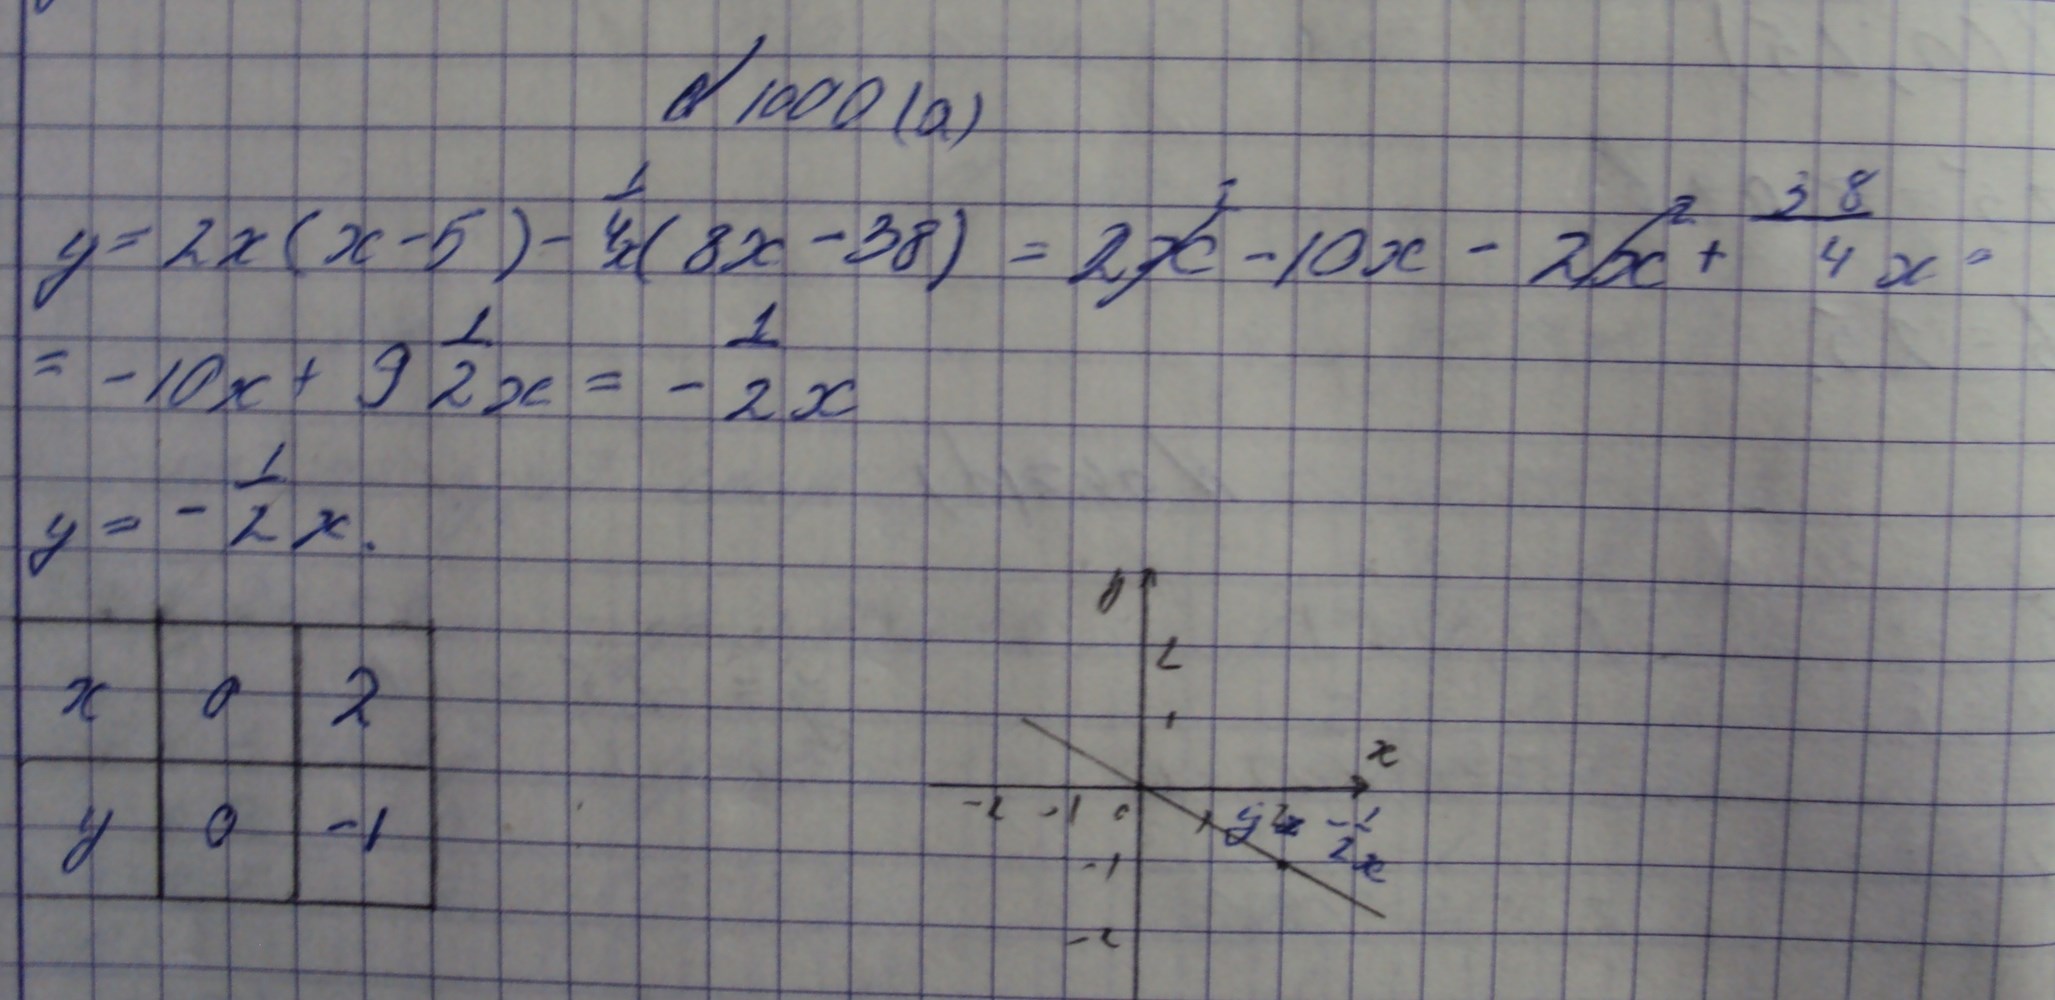 № 1000 (а)
y = 2x(x-5) - 1/4x(8x-38) = 2x² - 10x - 2x² + 38/4 x =
= -10x + 9 1/2 x = - 1/2 x
y = - 1/2 x.
x 0 2
y 0 -1
y
2
1
x
-2 -1 0 1 2
y = - 1/2 x
-1
-2